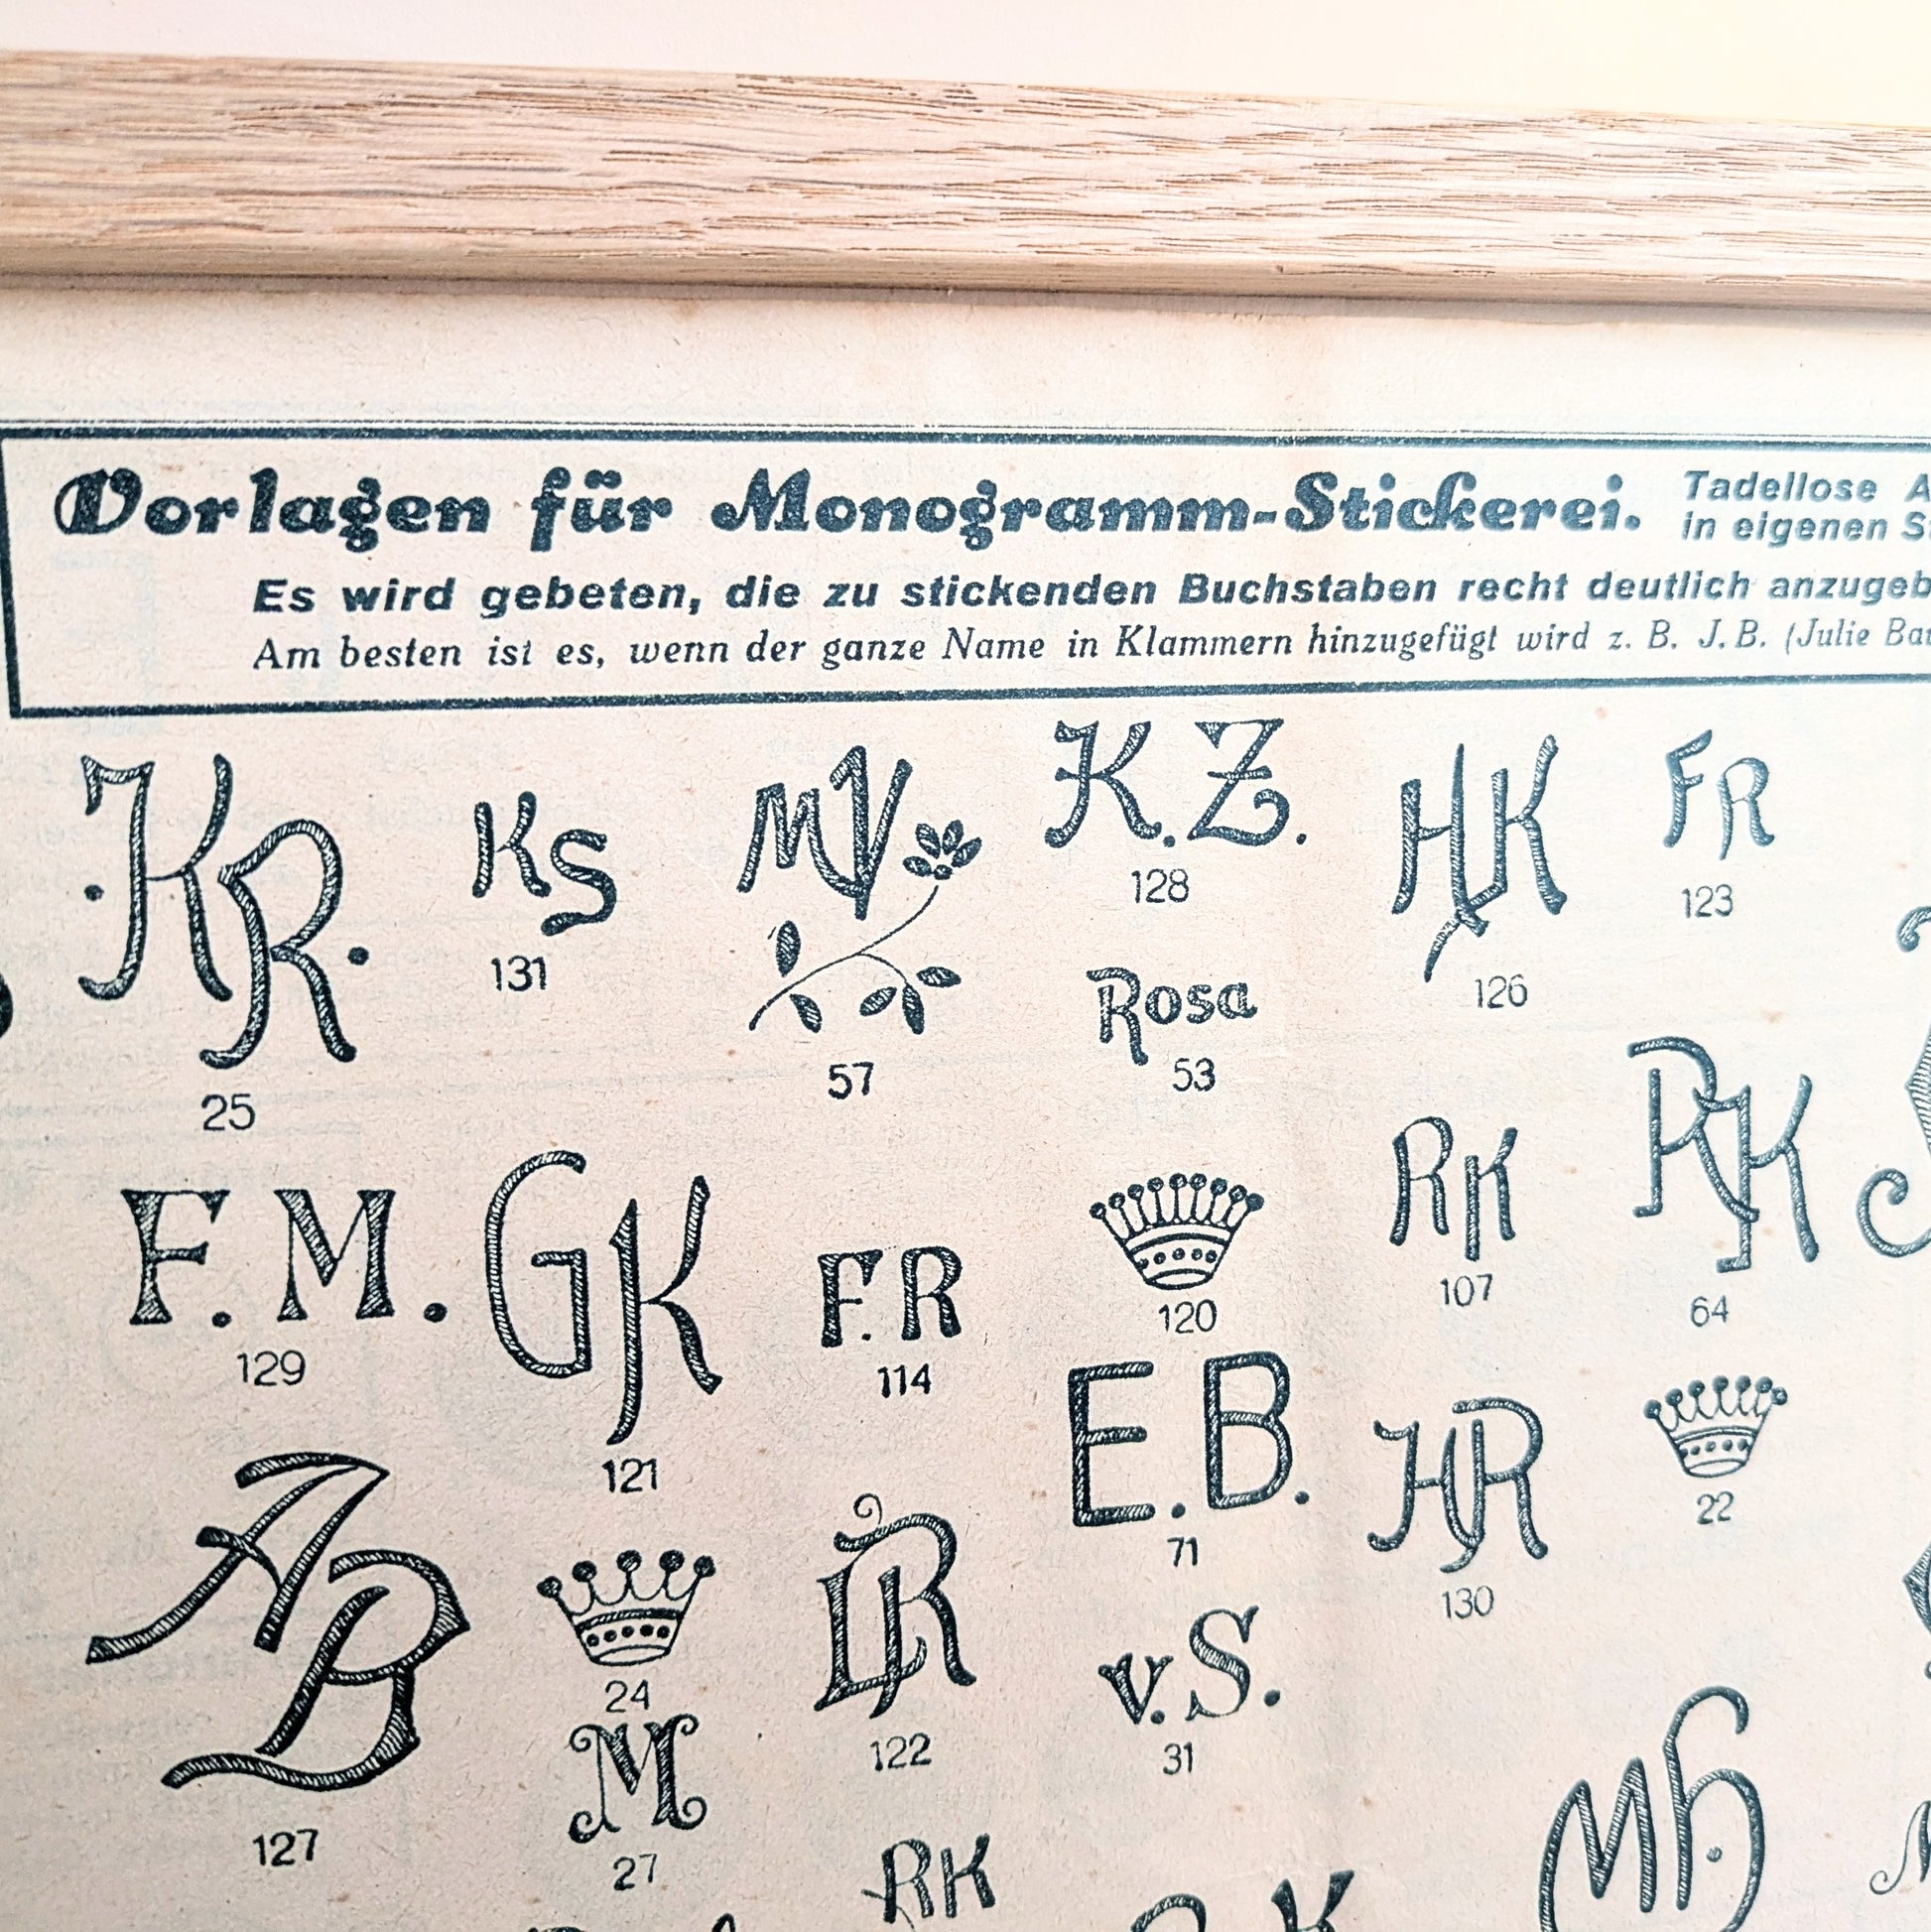 Vorlagen für Monogramm-Stickerei.
Tadellose
in eigenen
Es wird gebeten, die zu stickenden Buchstaben recht deutlich
Am besten ist es, wenn der ganze Name in Klammern hinzugefügt wird z. B. J. B. (Julie
K. Z.
128
HK
126
FR
123
KR
25
KS
131
MV
57
Rosa
53
F. M.
129
GK
121
F. R
114
120
RK
107
RK
64
E. B.
71
HR
130
22
AB
127
24
LR
122
v. S.
31
M
27
RK